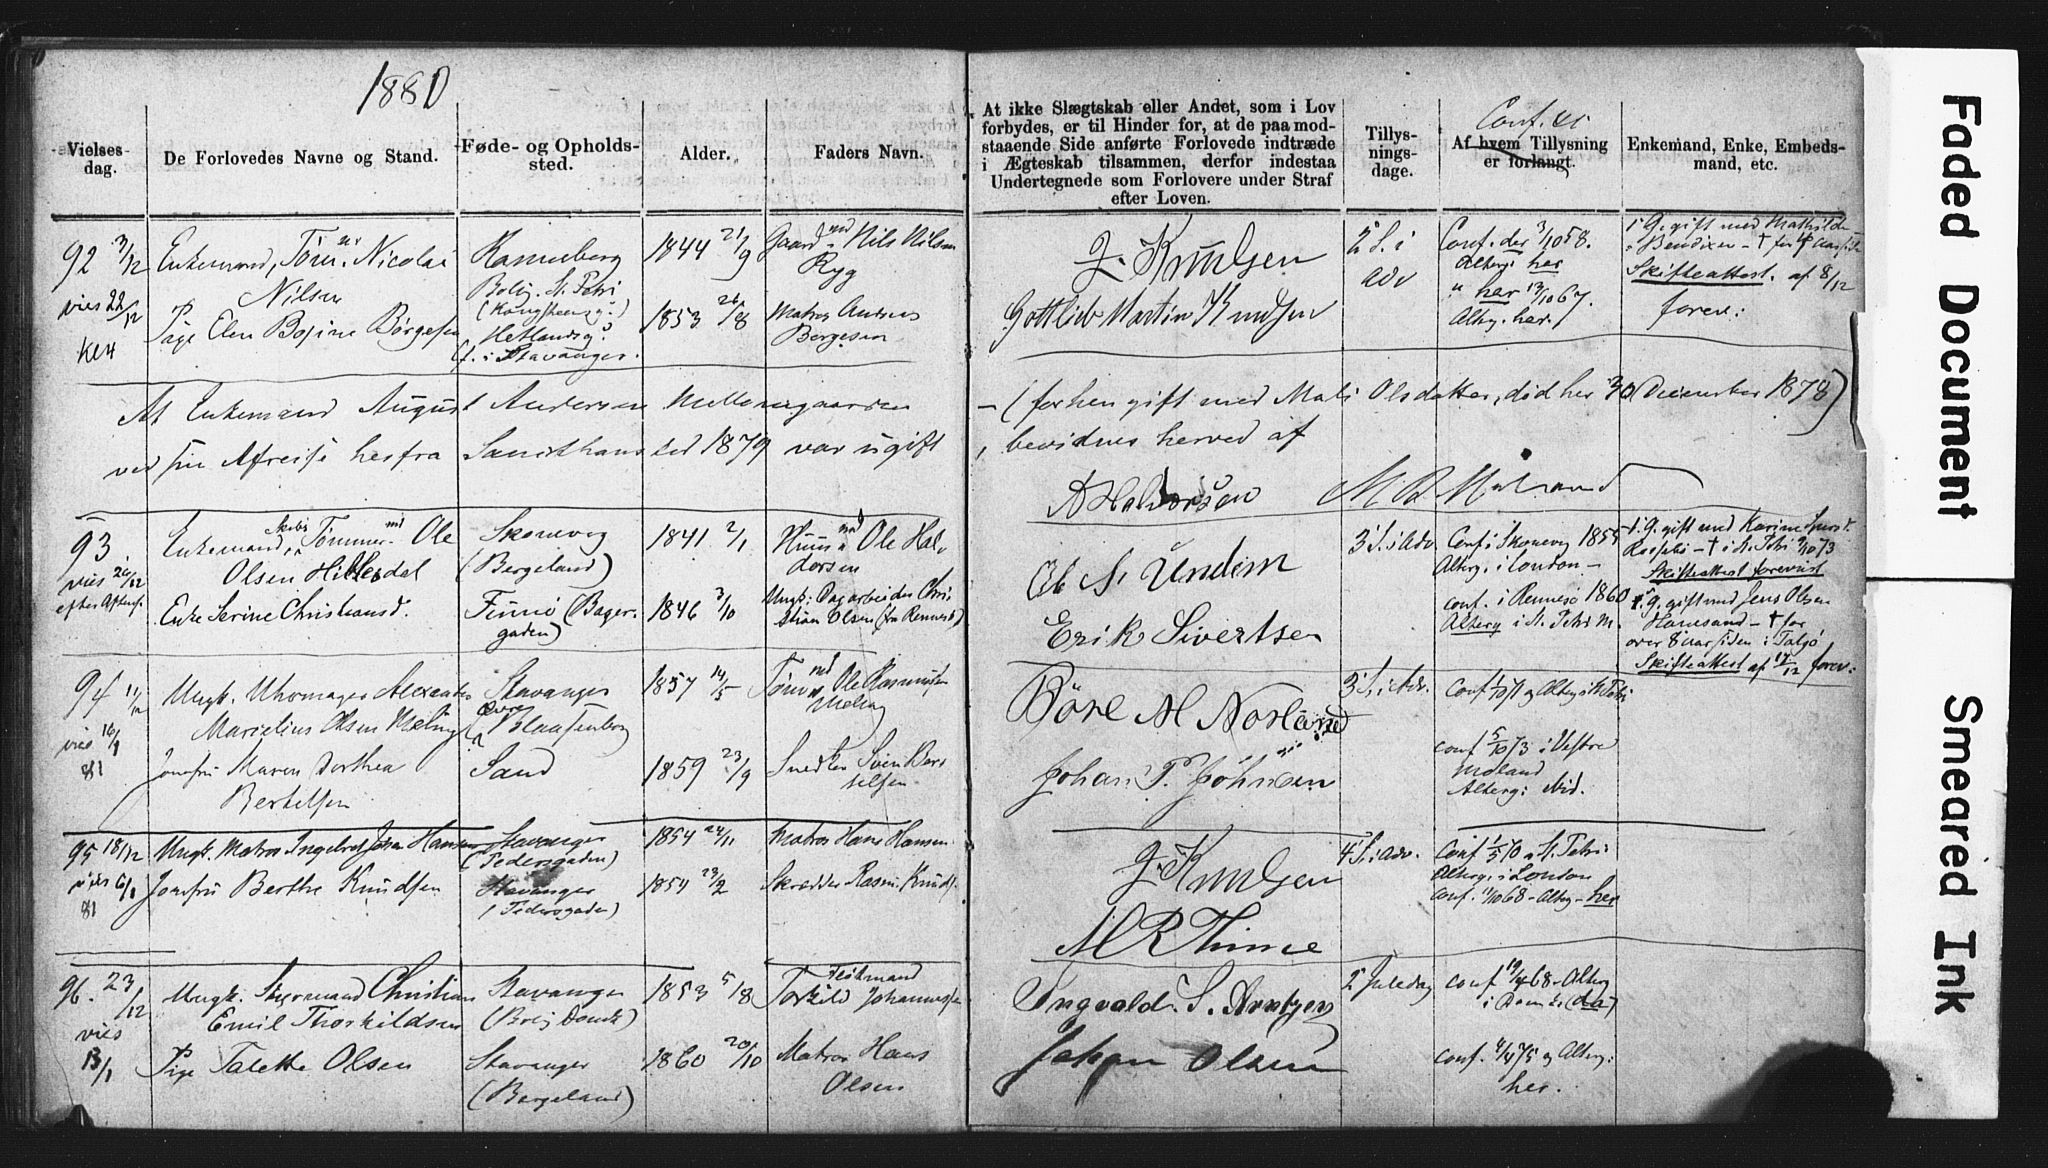 1880
Vielses-
dag.
De Forlovedes Navne og Stand.
Føde- og Opholds-
sted.
Alder.
Faders Navn.
At ikke Slægtskab eller Andet, som i Lov
forbydes, er til Hinder for, at de paa mod-
staaende Side anførte Forlovede indtræde
i Ægteskab tilsammen, derfor indestaa
Undertegnede som Forlovere under Straf
efter Loven.
Tillys-
nings-
dage.
Conf. &
Af hvem Tillysning
er forlangt.
Enkemand, Enke, Embeds-
mand, etc.
92 3/12
vies 22/12
Enkemand, Nicolai
Nilsen
Pige Elen Bosine Børgesen
Bolig. St. Petri
Hetlandsg.
f. i Stavanger.
1844 21/9
1853 26/8
Gaardmd Nils Nilsen
Ryg
Matros Andreas
Børgesen
J. Knudsen
Gottlieb Martin Knudsen
2 S. i
adv
Conf. der 3/10 58.
Alterg: her
" her 13/10 67.
Altg. her.
i G. gift med Mathilde
Bendixen - † for 4 Aar siden
Skifteattest. af 8/12
forev:
At Enkemand August Andersen
ved sin Afreise herfra Sancthanstid 1879 var ugift
- (forhen gift med Mali Olsdatter, död her 30 December 1878)
, bevidnes herved af
A Halvorsen
93.
vies 26/12
Enkemand, Tømmermd Ole
Olsen Hilledal
Enke Serine Christiansd.
Skonevig
(Bergeland)
Finnö (Bager-
gaden)
1841 2/1
1846 3/10
Huusmd Ole Hal-
vorsen
Ungk: Dagarbeider Chri-
stian Olsen (fra Rennesö)
Ob S. Undem
Erik Sivertsen
3 S. i Adv
Conf i Skonevig 1855
Altrg. i London -
conf. i Rennesö 1860
Alterg i St. Petri M.
i G. gift med Karine
- † i St. Petri 9/10 73
Skifteattest forevist
i G. gift med Jens Olsen
- † for
over 8 aar siden i Talgö
Skifteattest af 17/12 forev:
94 11/12
vies 16/1
81
Ungk. Uhrmager Alexander
Marselius Olsen Meling
Jomfru Maren Dorthea
Bertelsen
Stavanger
Sand
1857 14/5
1859 23/9
Tømmermd Ole Rasmussen
Meling
Snedker Sven Ber-
telsen
Böre M Norland
Johan P. Johnsen
3 S. i Adv.
Conf 1/10 71 og Alterg i St. Petri
conf 5/10 73 i Vestre
Moland
Alterg: ibid.
95 18/12
vies 6/1
81
Ungk. Matros Ingebret Johan Hansen
Jomfru Berthe Knudsen
Stavanger
(Pedersgaden)
Stavanger
(Pedersgaden)
1854 24/11
1854 23/2
Matros Hans Hansen
Skrædder Rasm. Knuds.
J. Knudsen
M R Thime
4 S. i Adv.
Conf 1/5 70 i St. Petri
Alterg: i London
conf. 11/10 68 - Alterg - her
96. 23/12
vies
13/1
Ungk. Styrmand Christian
Emil Thorkildsen
Pige Talette Olsen
Stavanger
Stavanger
(Bergeland)
1853 5/8
1860 20/10
Torkild Johannessen
Matros Hans
Olsen
Ingvald S. Arntzen
Johan Olsen
2 Juledag
conf 19/4 68. Alterg
conf. 4/4 75 og Alterg:
her.
Faded Document
Smeared Ink